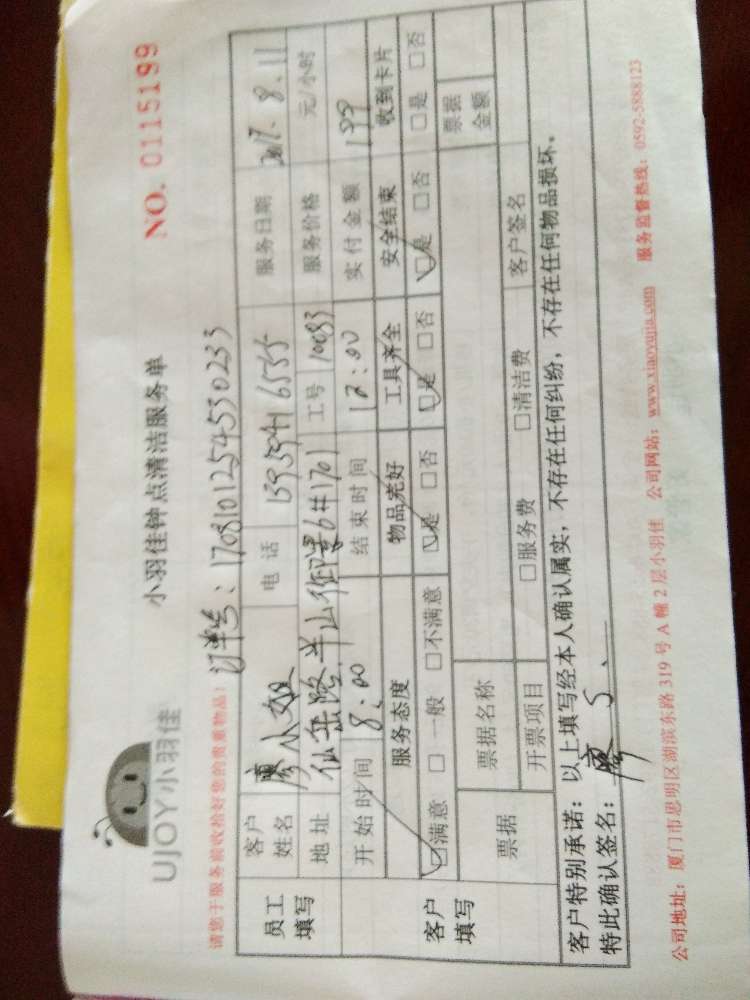 UJOY小羽佳
小羽佳钟点清洁服务单
NO. 0115199
请您于服务前收拾好您的贵重物品！
订单号：170810125453 0233
员工填写
客户姓名 廖小姐 电话 服务日期 2017.8.11
地址 仙岳路半山御景6#1701 工号 10083 服务价格 元/小时
开始时间 8:00 结束时间 12:00 实付金额 199
客户填写
服务态度 物品完好 工具齐全 安全结束 收到卡片
☑满意 □一般 □不满意 ☑是 □否 ☑是 □否 ☑是 □否 □是 □否
票据 票据名称 票据金额
开票项目 □服务费 □清洁费 客户签名
客户特别承诺：以上填写经本人确认属实，不存在任何纠纷，不存在任何物品损坏。
特此确认签名：廖
公司地址：厦门市思明区湖滨东路 319 号 A 幢 2 层小羽佳 公司网站：www.xiaoyujia.com 服务监督热线：0592-5888123